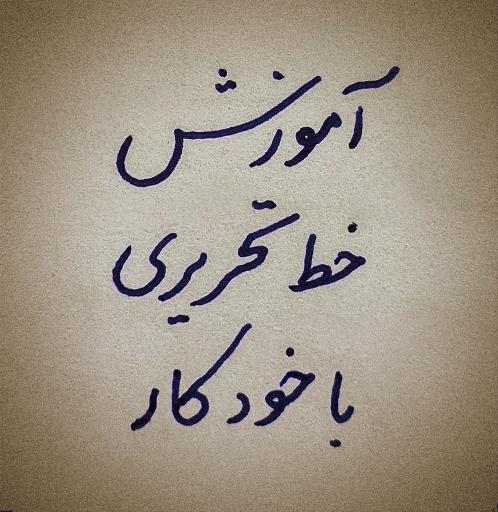 آموزش
خط تحریری
با خودکار